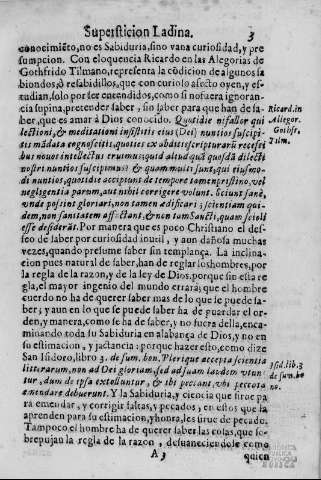 Supersticion Ladina. 3
conocimiēto, no es Sabiduria, sino vana curiosidad, y pre
sumpcion. Con eloquencia Ricardo en las Alegorias de
Gothfrido Tilmano, representa la cōdicion de algunos sa
biondos, ò resabidillos, que con curioso afecto oyen, y es-
tudian, solo por ser entendidos, como si no fuera ignoran-
cia supina, pretender saber, sin saber para que han de sa-
ber, que es amar à Dios conocido. Quotidie nisallor qui
lectioni, & meditationi insistitis eius (Dei) nuntios suscipi-
tis mādata cognoscitis, quoties ex abditis scripturarū recessi
bus nouos intellectus eruimus; quid aliud quā quosdā dilecti
nostri nuntios suscipimus? & quam multi sunt, qui eiusmo-
di nuntios, quotidie accipiunt de tempore tamen pristino, vel
negligentia parum, aut nihil corrigere volunt. Sciunt sanè,
vnde possint gloriari, non tamen ædificari; scientiam qui-
dem, non sanitatem affectant, & non tam Sancti, quam scioli
esse desiderāt. Por manera que es poco Christiano el des-
seo de saber por curiosidad inutil, y aun dañosa muchas
vezes, quando presume saber sin templança. La inclina-
cion pues natural de saber, han de reglar los hombres, por
la regla de la razon, y de la ley de Dios, porque sin esta re
gla, el mayor ingenio del mundo errarà; que el hombre
cuerdo no ha de querer saber mas de lo que le puede sa-
ber; y aun en lo que se puede saber ha de guardar el or-
den, y manera, como se ha de saber, y no fuera della, enca-
minando toda su Sabiduria en alabança de Dios, y no en
su estimacion, y jactancia: porque hazer esto, como dize
San Isidoro, libro 3. de sum. bon. Plerique accepta scientia
litterarum, non ad Dei gloriam, sed ad suam laudem vtun
tur, dum de ipsa extolluntur, & ibi peccant, vbi peccata
emendare debuerunt. Y la Sabiduria, y ciencia que sirue pa
ra emendar, y corrigir faltas, y pecados, en estos que la
aprenden para su estimacion, y honra, les sirue de pecado.
Tampoco el hombre ha de querer saber las cosas, que so-
brepujan la regla de la razon, desuaneciendole como
A 3 quien
Ricard. in
Allegor.
Gothfr.
Tilm.
Isid. lib. 3
de sum. bo
no.